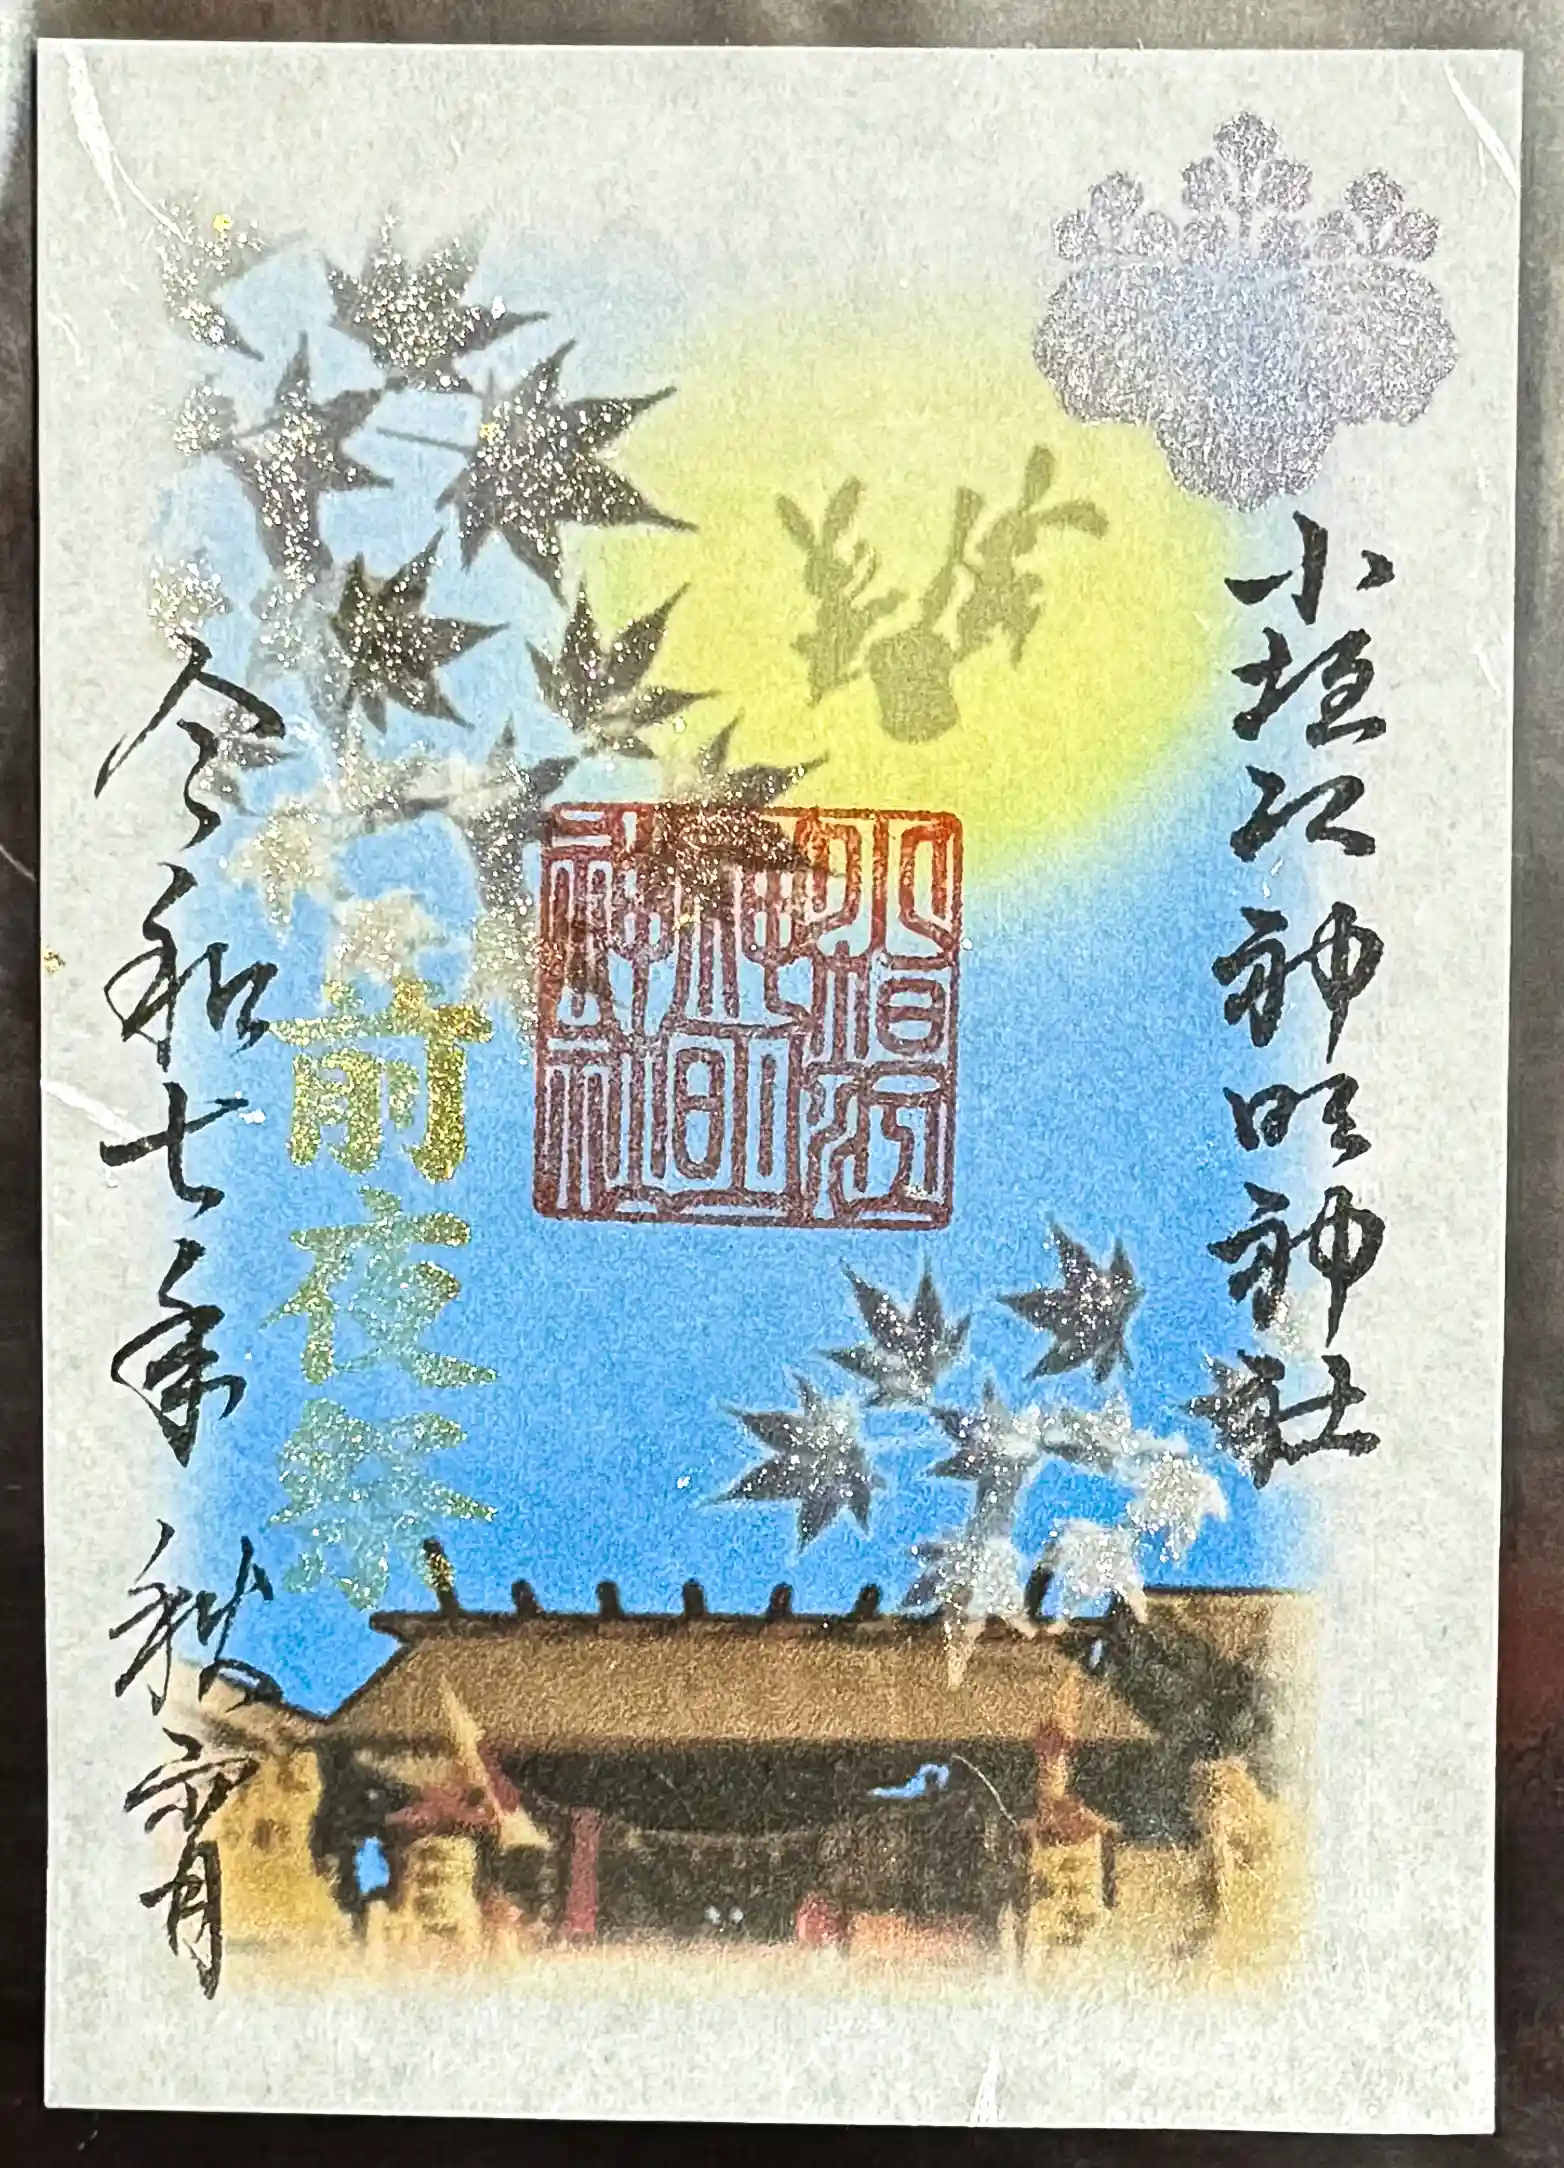 小垣江神明神社
小垣江
神明
神社
前夜祭
令和七年 秋宵